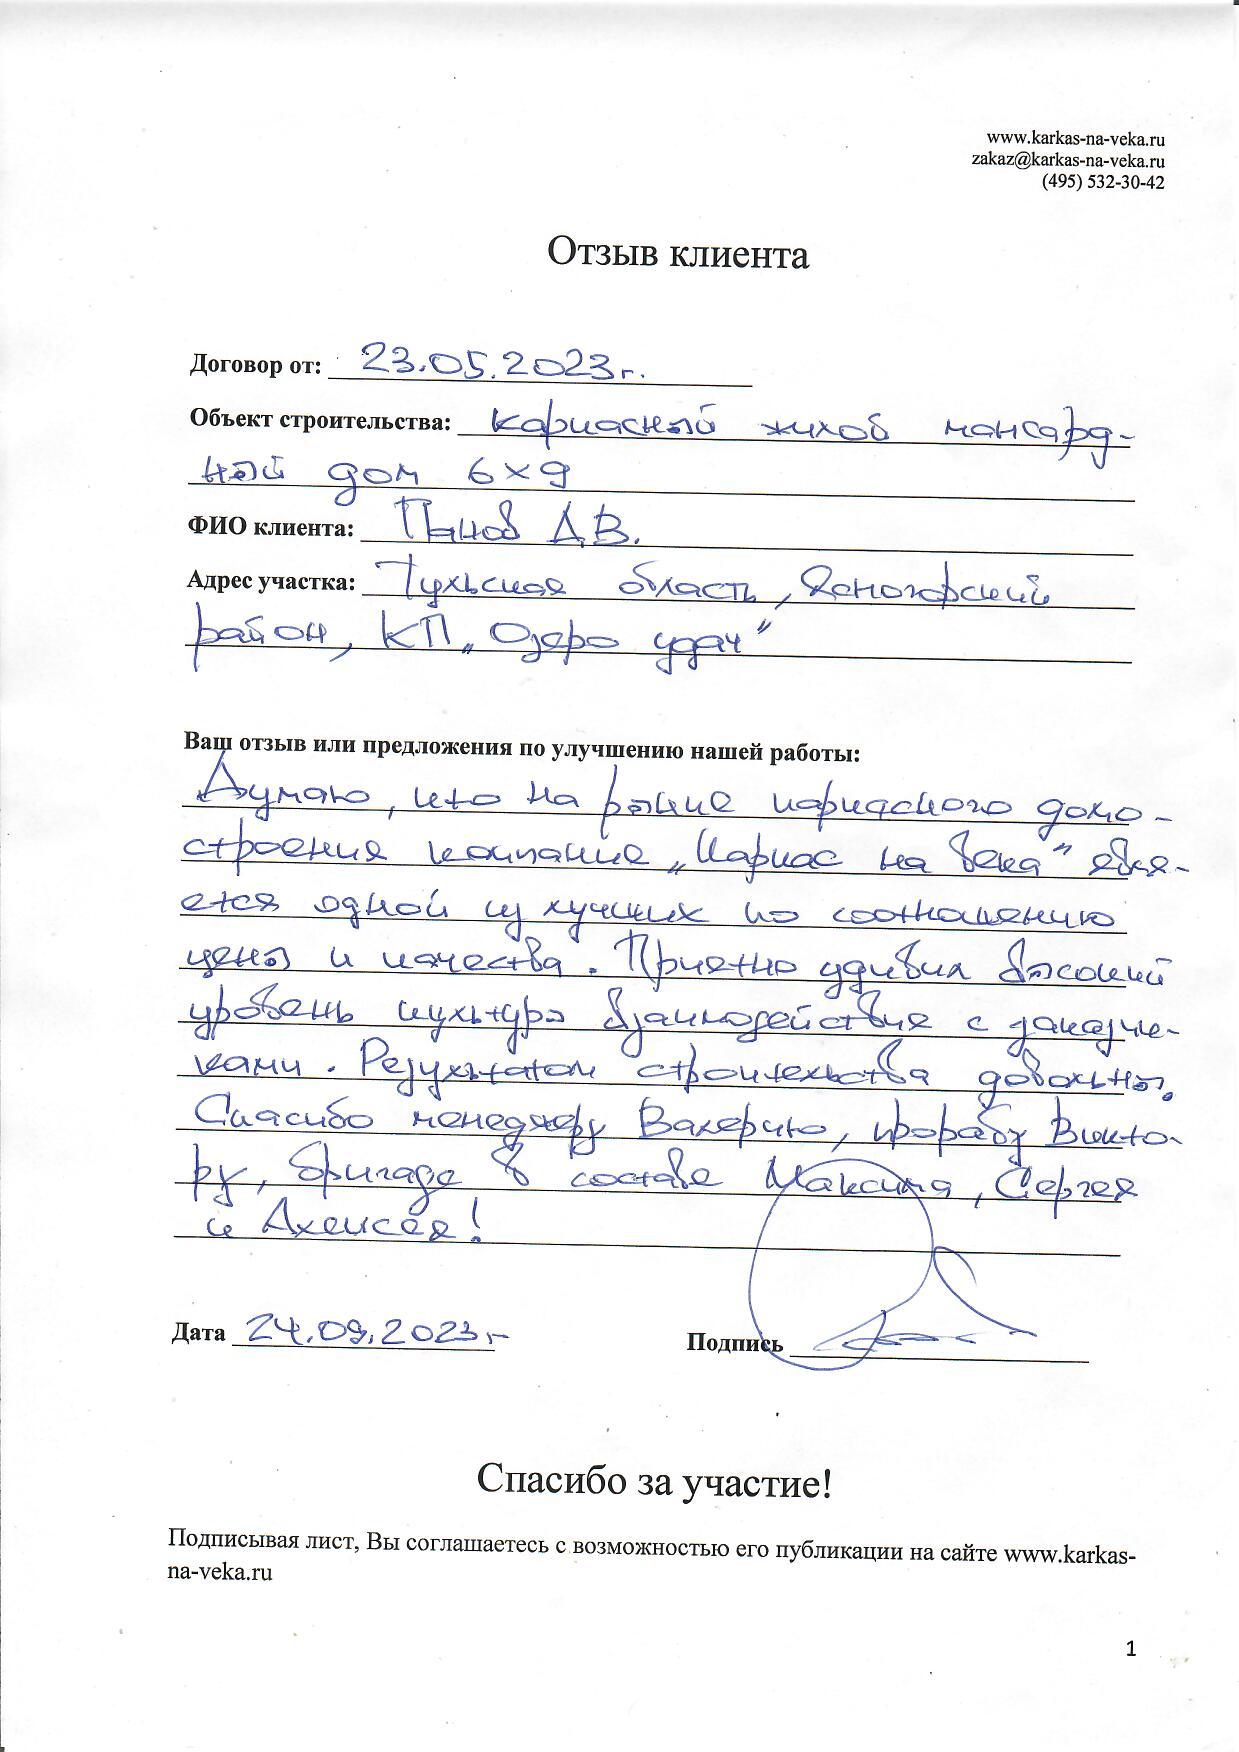 www.karkas-na-veka.ru
zakaz@karkas-na-veka.ru
(495) 532-30-42
Отзыв клиента
Договор от: 23.05.2023г.
Объект строительства: каркасный жилой мансард-
ный дом 6х9
ФИО клиента: Панов Д.В.
Адрес участка: Тульская область, Ясногорский
район, КП „Озеро удач"
Ваш отзыв или предложения по улучшению нашей работы:
Думаю, что на рынке каркасного домо-
строения компания „Каркас на века" явля-
ется одной из лучших по соотношению
цены и качества. Приятно удивил высокий
уровень культуры взаимодействия с заказчи-
ками. Результатом строительства довольны.
Спасибо менеджеру Валерию, прорабу Викто-
ру, бригаде в составе Максима, Сергея
и Алексея!
Дата 24.09.2023г
Подпись
Спасибо за участие!
Подписывая лист, Вы соглашаетесь с возможностью его публикации на сайте www.karkas-
na-veka.ru
1